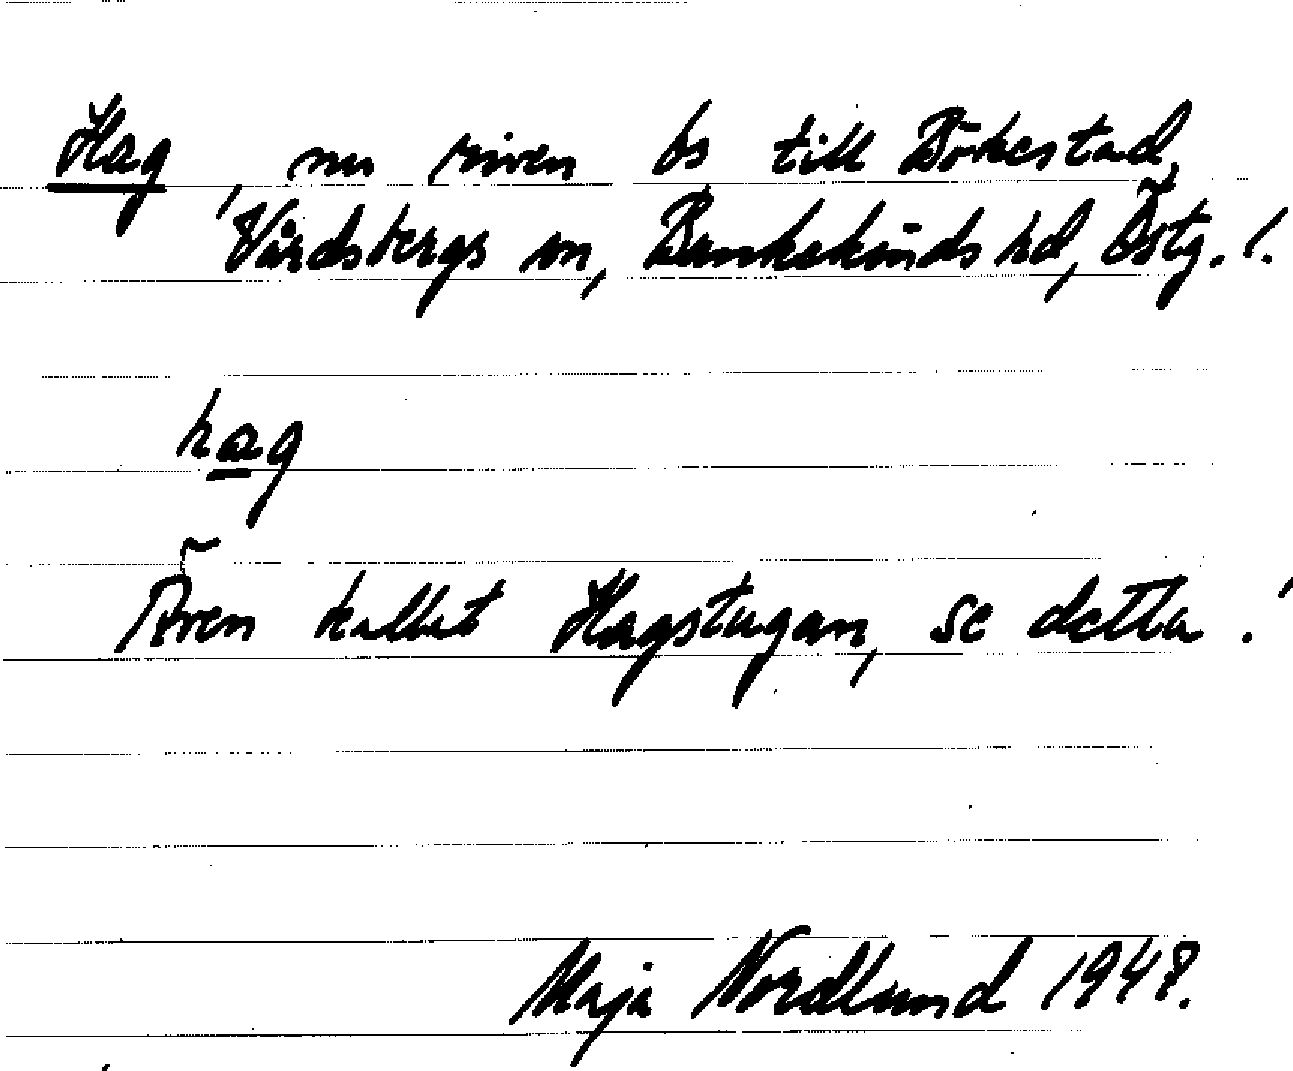 Hag, nu riven bs till Bökestad,
Vårdsbergs sn, Bankekinds hd, Östg. l.
hag
Även kallat Hagstugan, se detta!
Maja Nordlund 1948.